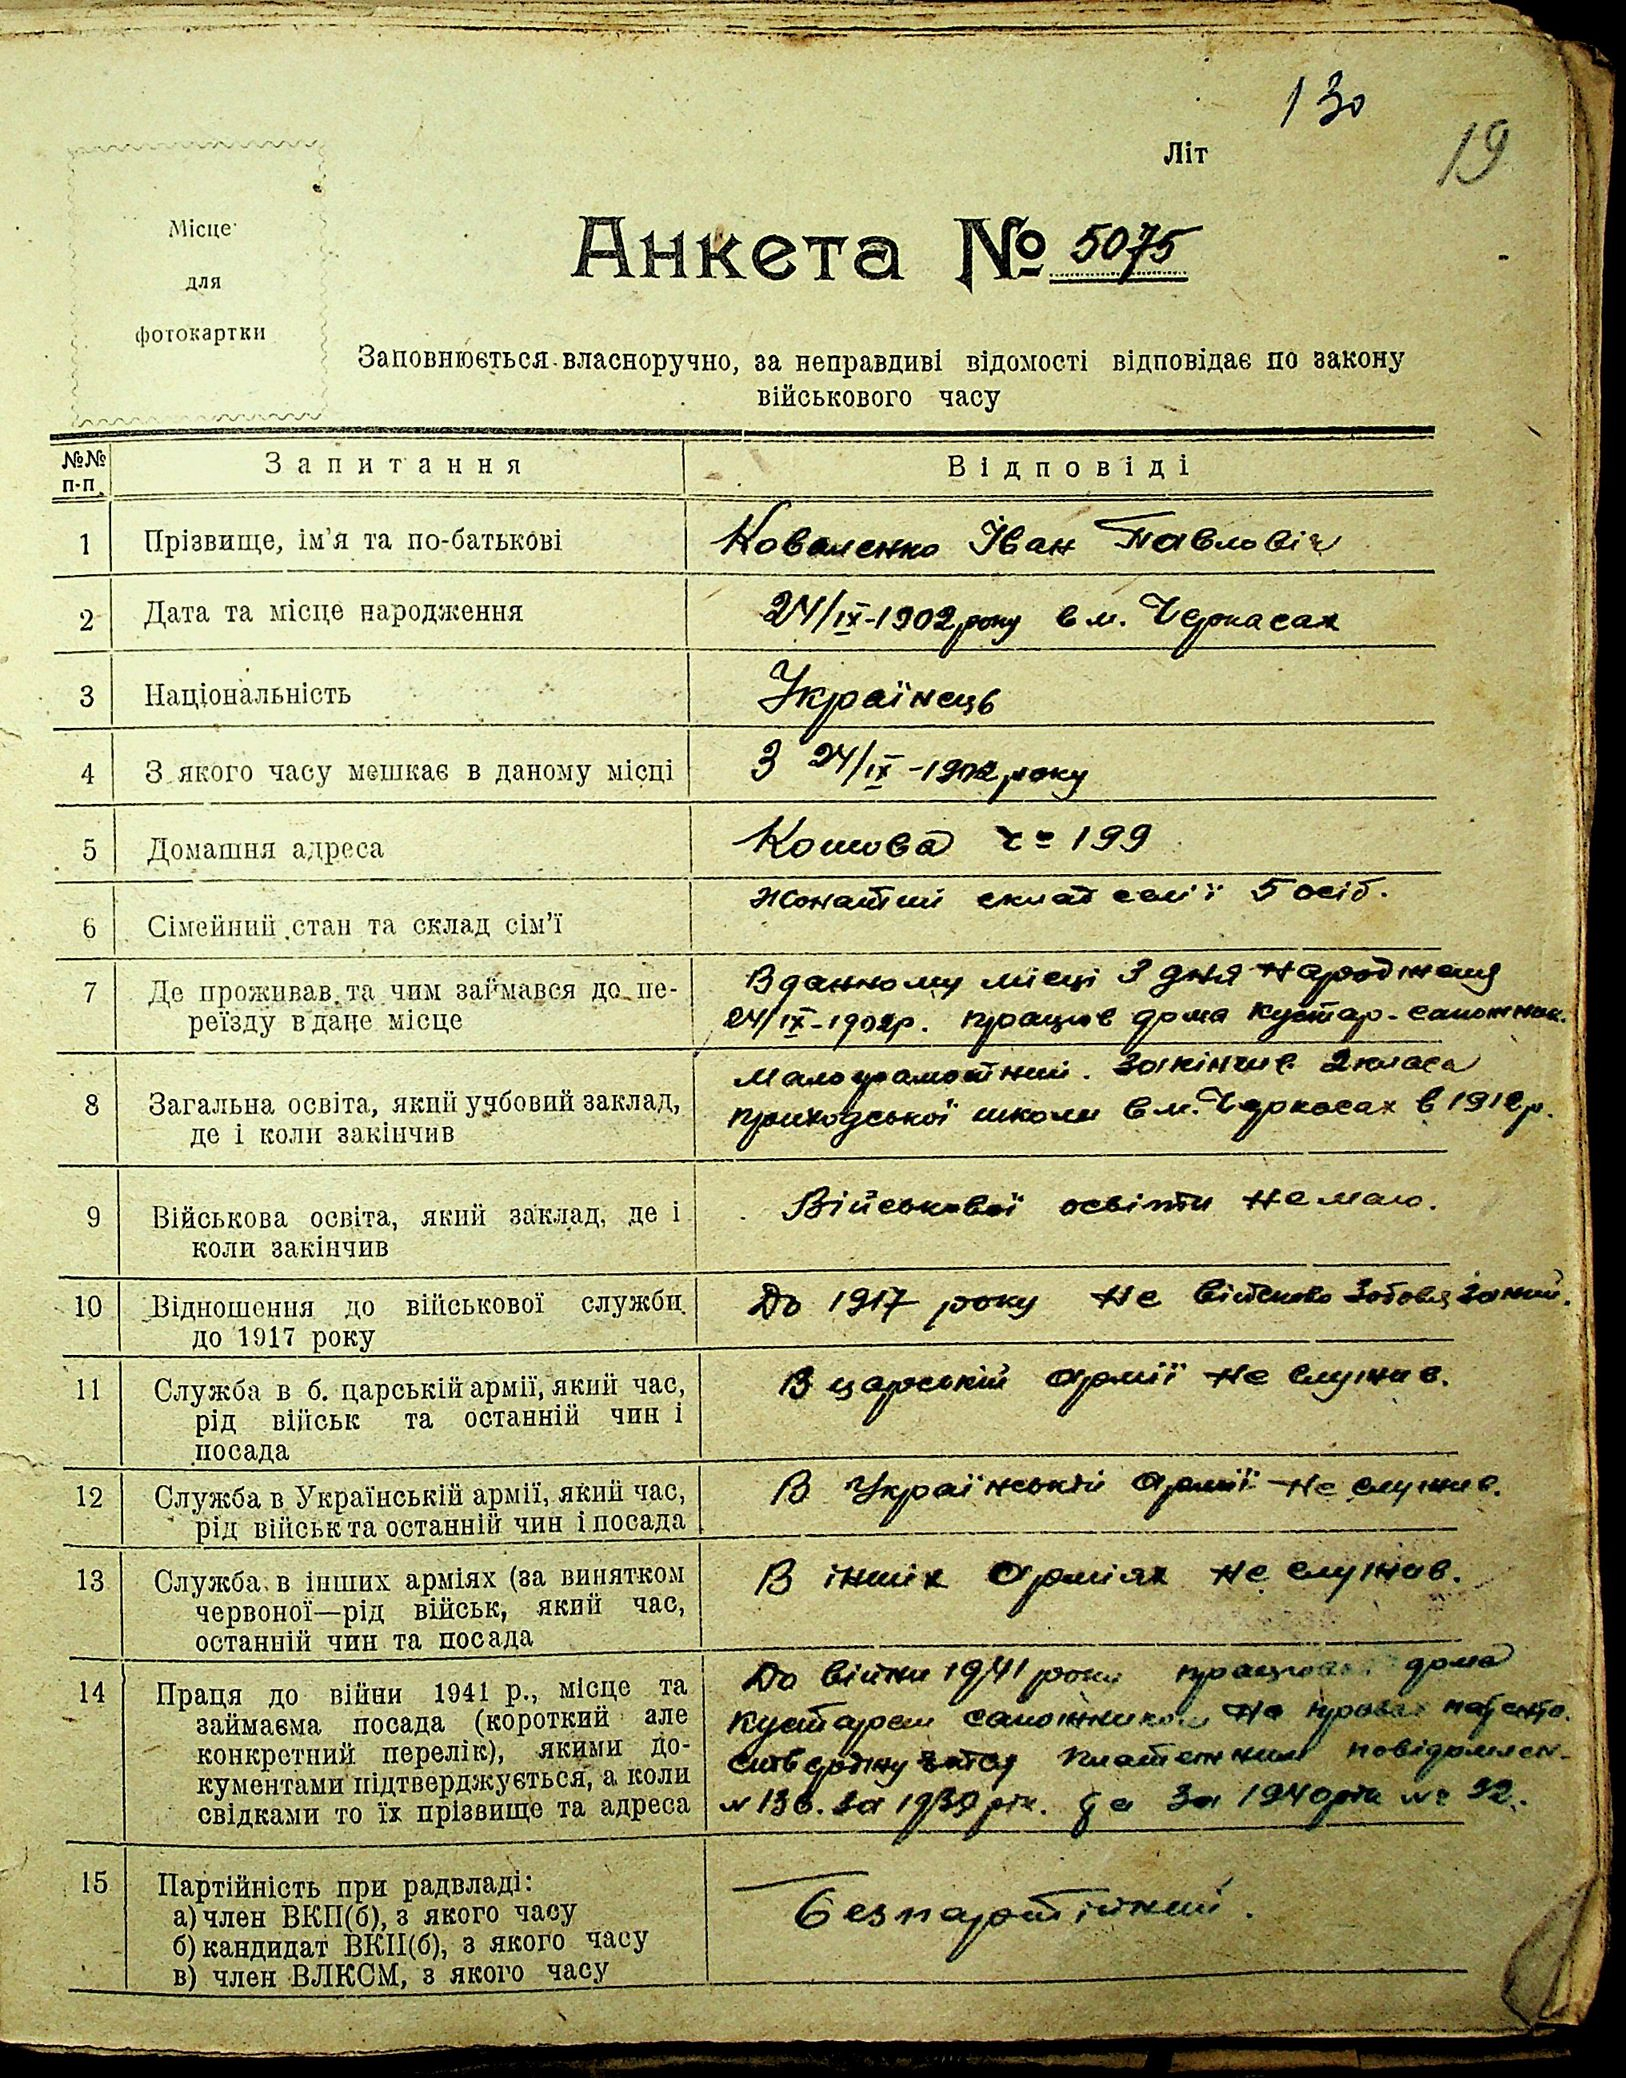 130
Літ
19
Місце
для
фотокартки
Анкета № 5075
Заповнюється власноручно, за неправдиві відомості відповідає по закону
військового часу
№№
п-п
Запитання
Відповіді
1
Прізвище, ім'я та по-батькові
Коваленко Іван Павловіч
2
Дата та місце народження
24/IX-1902 року в м. Черкасах
3
Національність
Українець
4
З якого часу мешкає в даному місці
З 24/IX-1902 року
5
Домашня адреса
Кошова 199
6
Сімейний стан та склад сім'ї
Жонатий склад семї 5 осіб.
7
Де проживав та чим займався до пе-
реїзду в дане місце
В данному місці З дня народженя
24/IX-1902р. працюв дома кустар-сапожник.
8
Загальна освіта, який учбовий заклад,
де і коли закінчив
Малограмотний. Закінчив 2 класа
приходської школи в м. Черкасах в 1912р.
9
Військова освіта, який заклад, де і
коли закінчив
Військової освіти не маю.
10
Відношення до військової служби
до 1917 року
До 1917 року не військово зобовязаний.
11
Служба в б. царській армії, який час,
рід військ та останній чин і
посада
В царській армії не служив.
12
Служба в Українській армії, який час,
рід військ та останній чин і посада
В Українській армії не служив.
13
Служба в інших арміях (за винятком
червоної—рід військ, який час,
останній чин та посада
В інших арміях не служив.
14
Праця до війни 1941 р., місце та
займаєма посада (короткий але
конкретний перелік), якими до-
кументами підтверджується, а коли
свідками то їх прізвище та адреса
До війни 1941 року працював дома
кустарем сапожником на правах патента.
платежним повідомлен-
№ 136. за 1939 рік. за 1940 рік № 32.
15
Партійність при радвладі:
а) член ВКП(б), з якого часу
б) кандидат ВКП(б), з якого часу
в) член ВЛКСМ, з якого часу
Безпартійний.